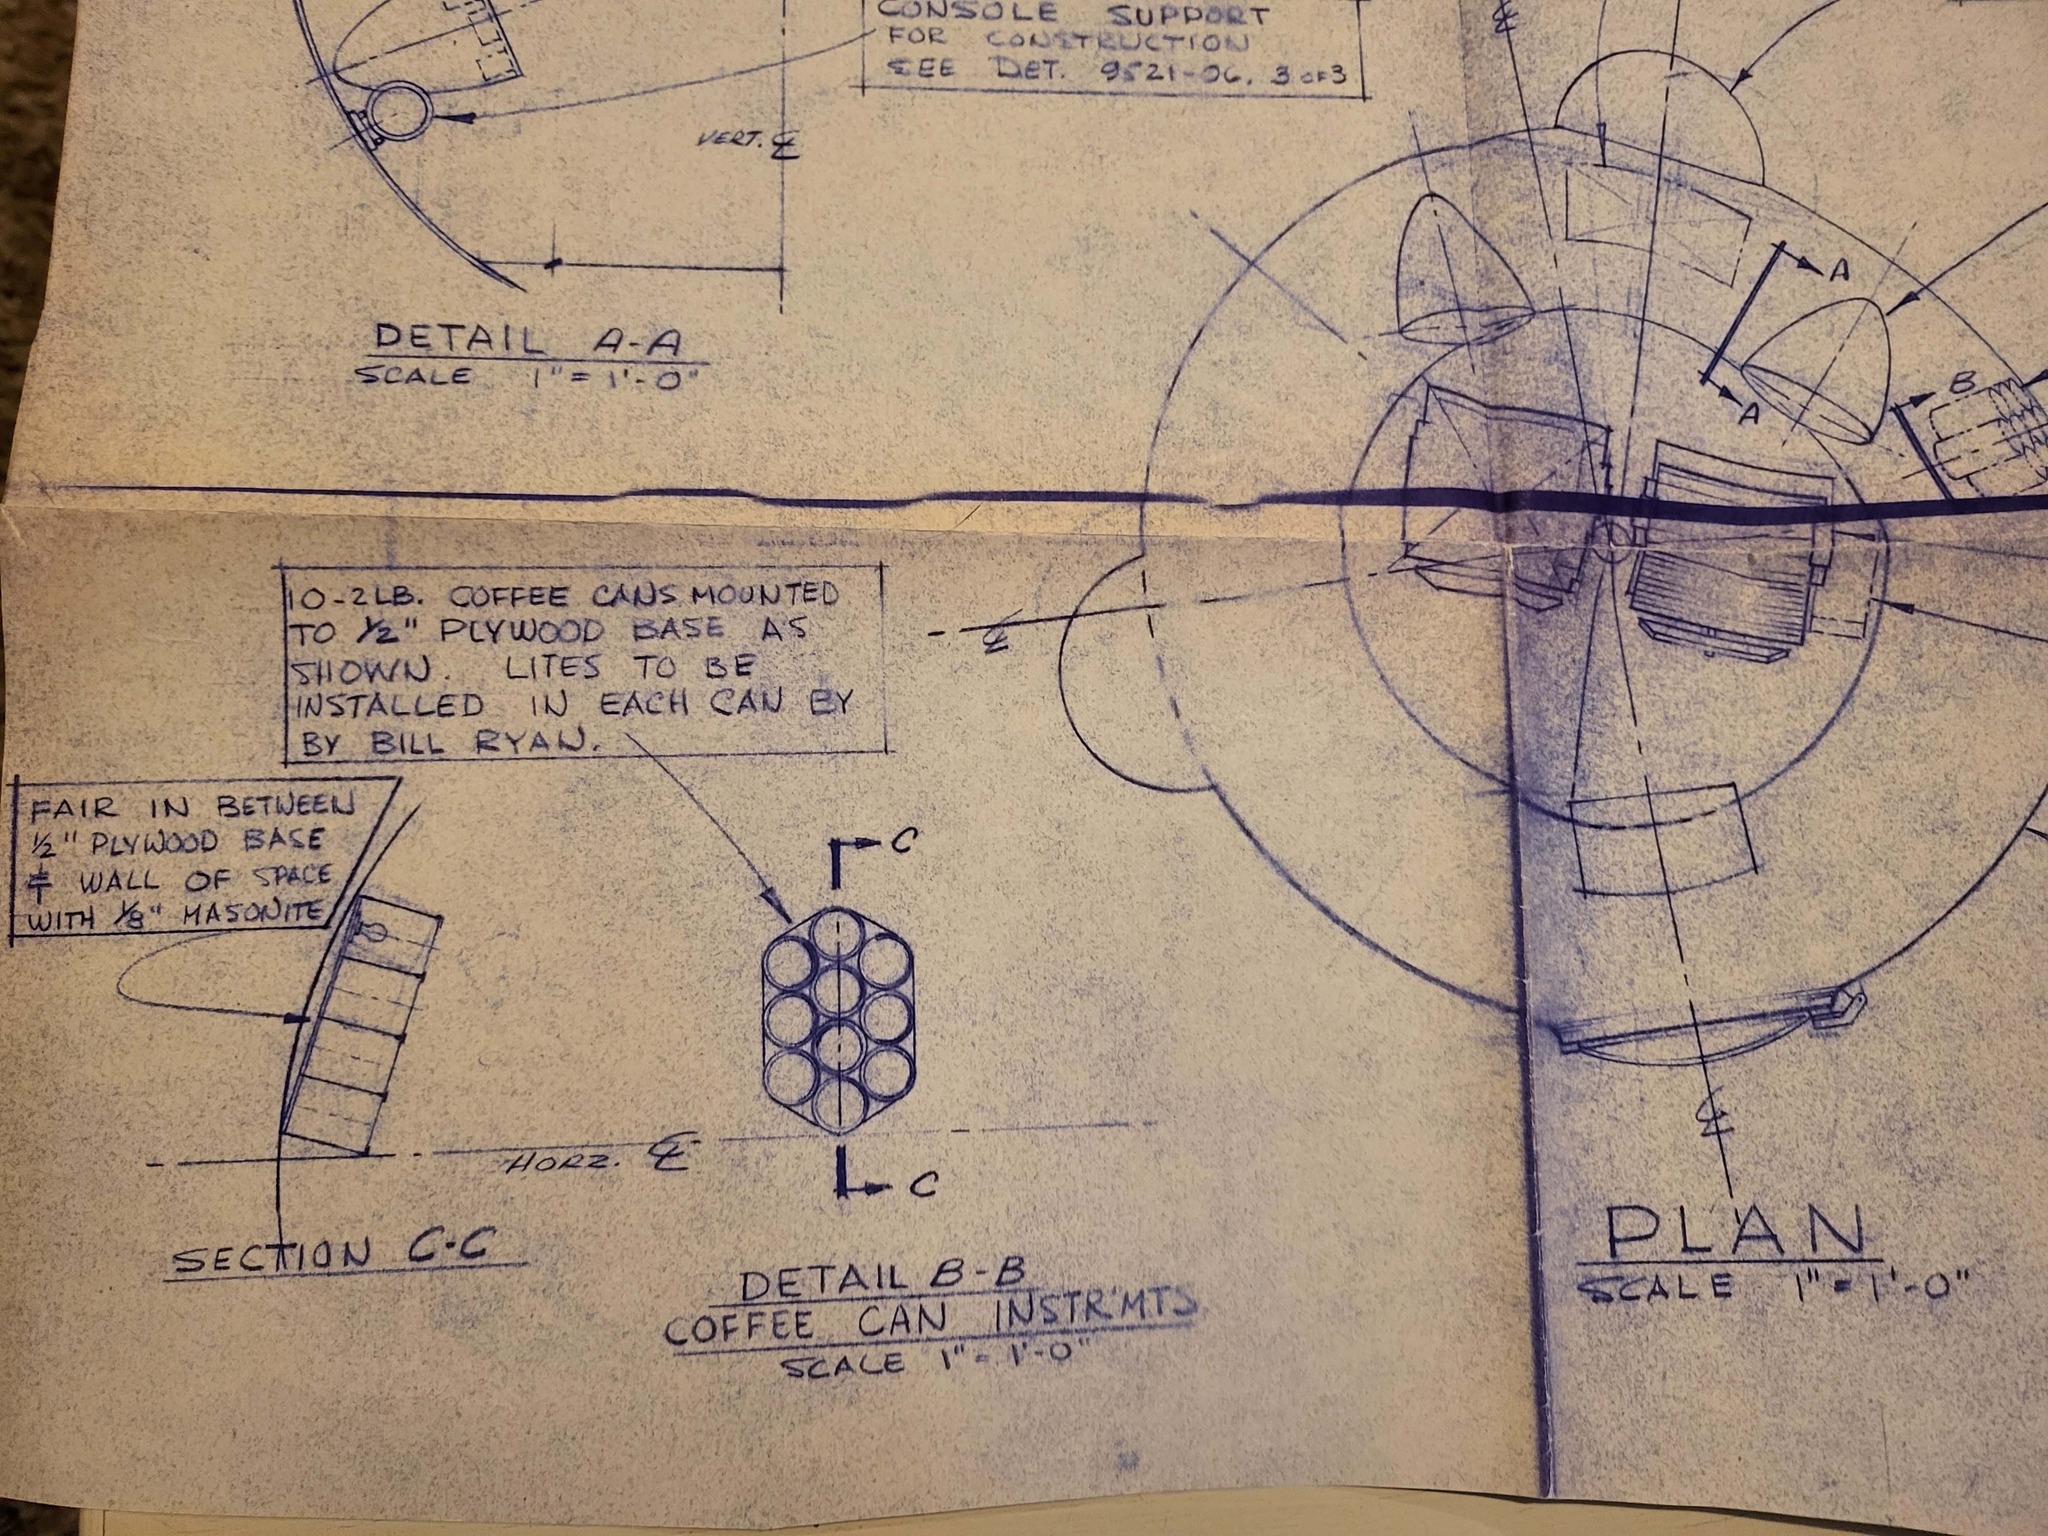 CONSOLE SUPPORT
FOR CONSTRUCTION
SEE DET. 9521-06. 3 OF 3
VERT. ℄
DETAIL A-A
SCALE 1" = 1'-0"
℄
A
A
B
10-2LB. COFFEE CANS MOUNTED
TO 1/2" PLYWOOD BASE AS
SHOWN. LITES TO BE
INSTALLED IN EACH CAN BY
BY BILL RYAN.
℄
FAIR IN BETWEEN
1/2" PLYWOOD BASE
& WALL OF SPACE
WITH 1/8" MASONITE
C
HORZ. ℄
C
SECTION C-C
DETAIL B-B
COFFEE CAN INSTR'MTS
SCALE 1" = 1'-0"
℄
PLAN
SCALE 1" = 1'-0"